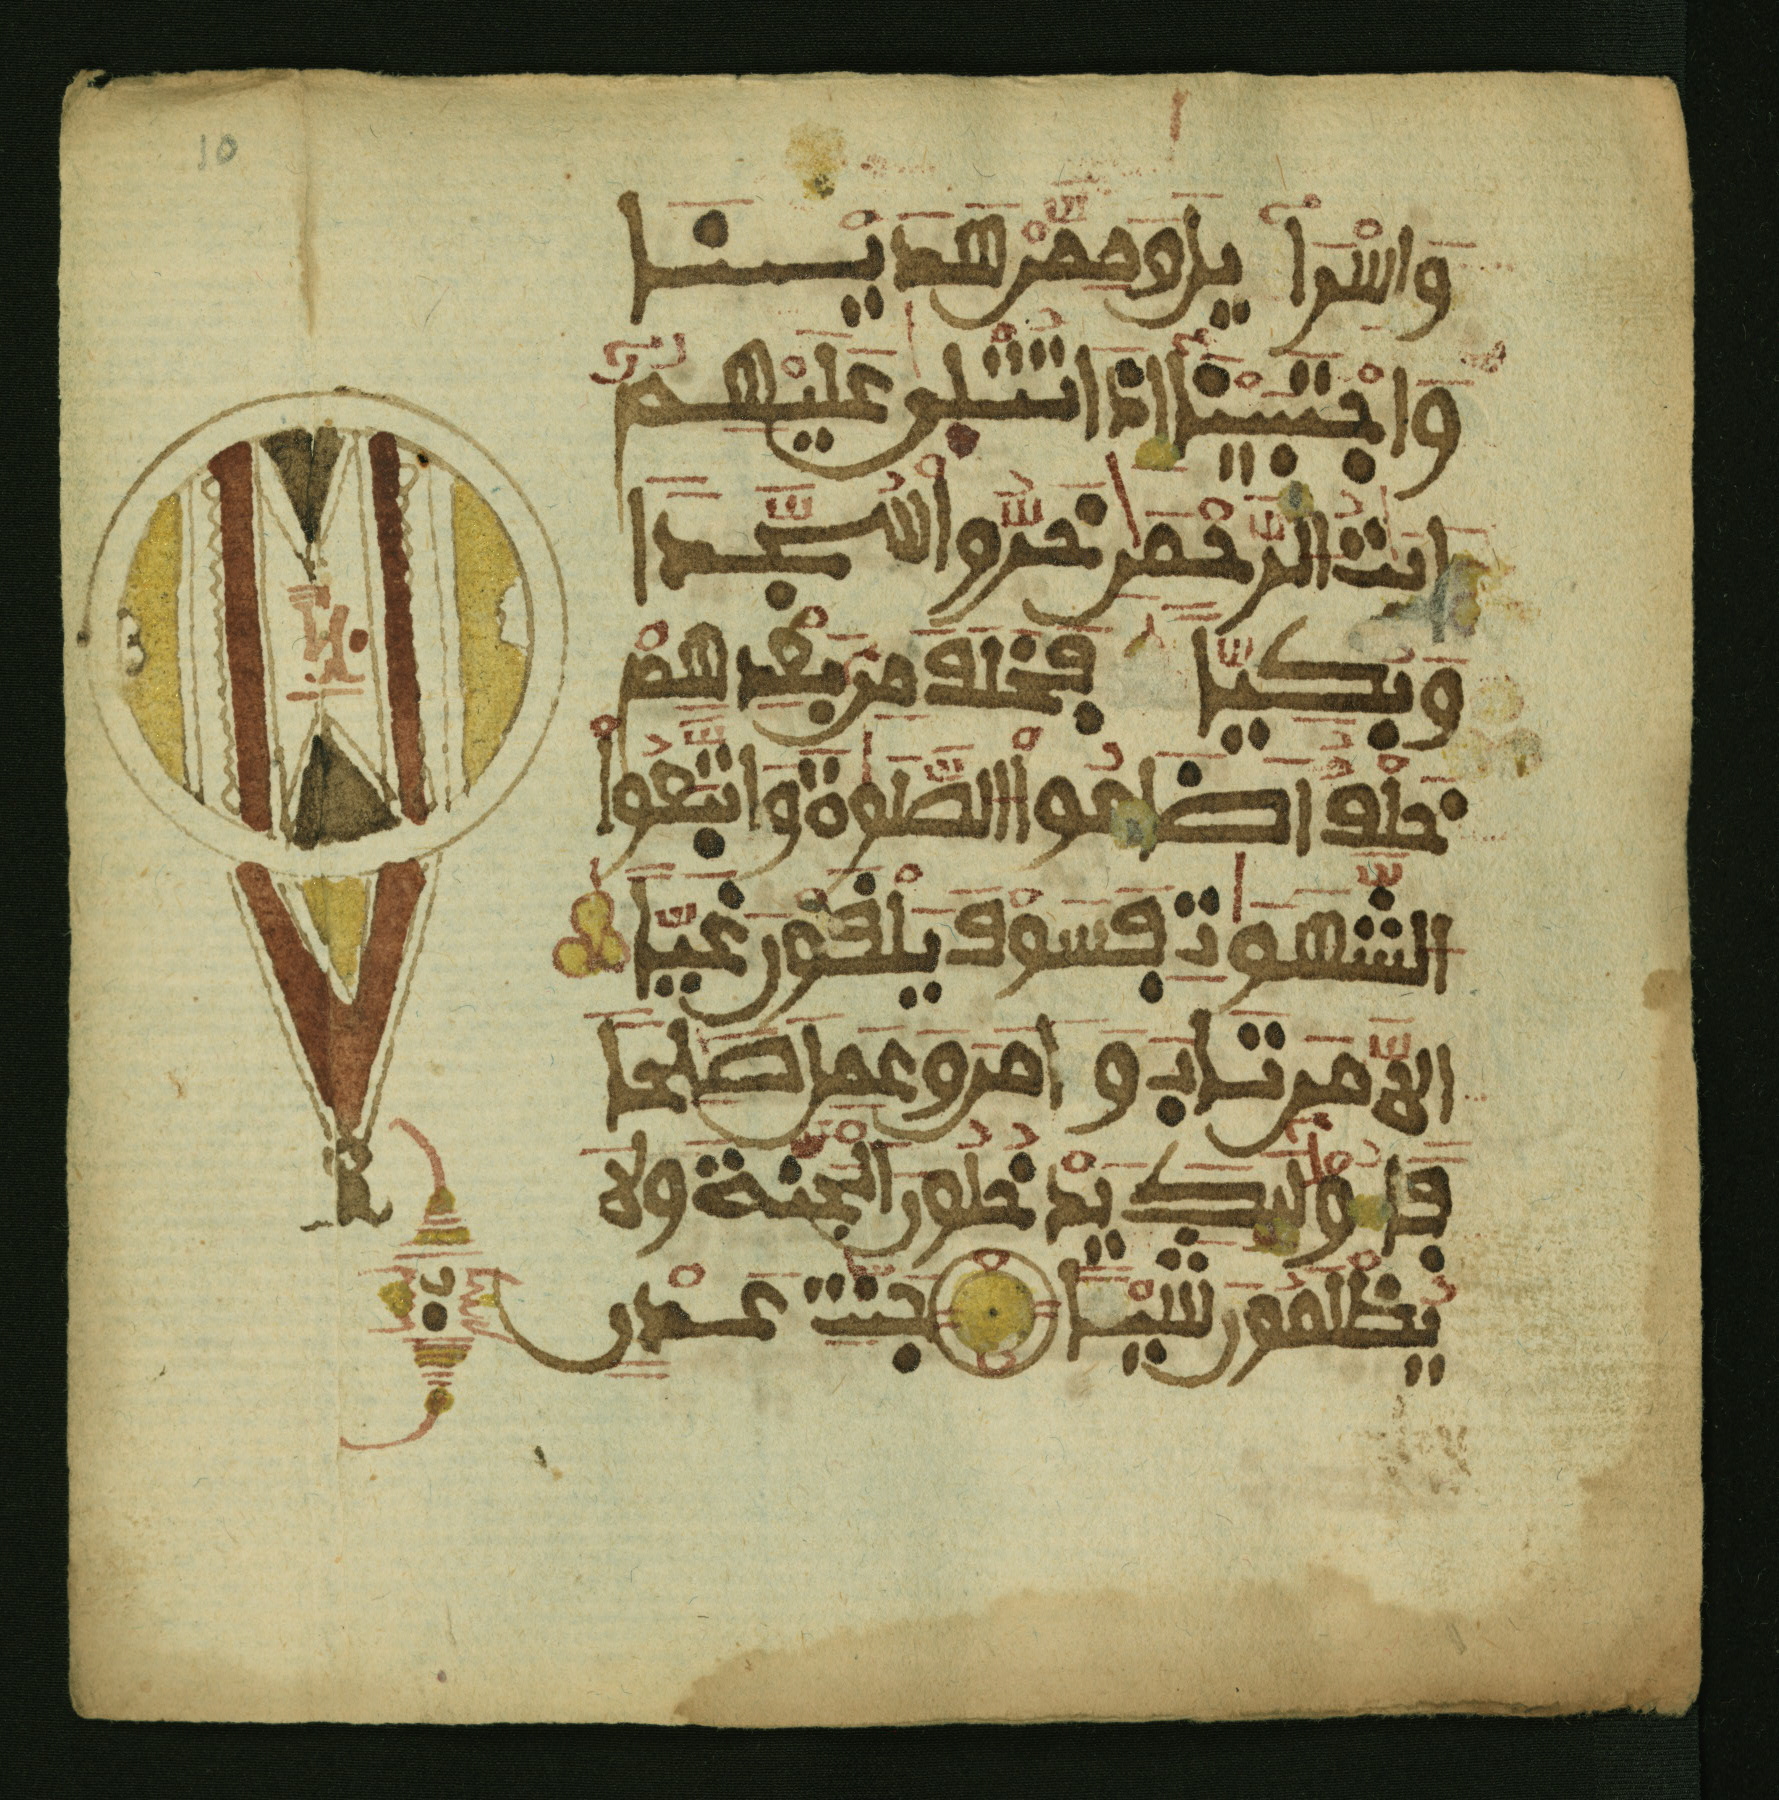 10
وإسرآءيل وممن هدينا
واجتبينا إذا تتلى عليهم
ءايت الرحمن خروا سجدا
وبكيا فخلف من بعدهم
خلف اضاعوا الصلوة واتبعوا
الشهوت فسوف يلقون غيا
الا من تاب وءامن وعمل صلحا
فاوليك يدخلون الجنة ولا
يظلمون شيئا جنت عدن